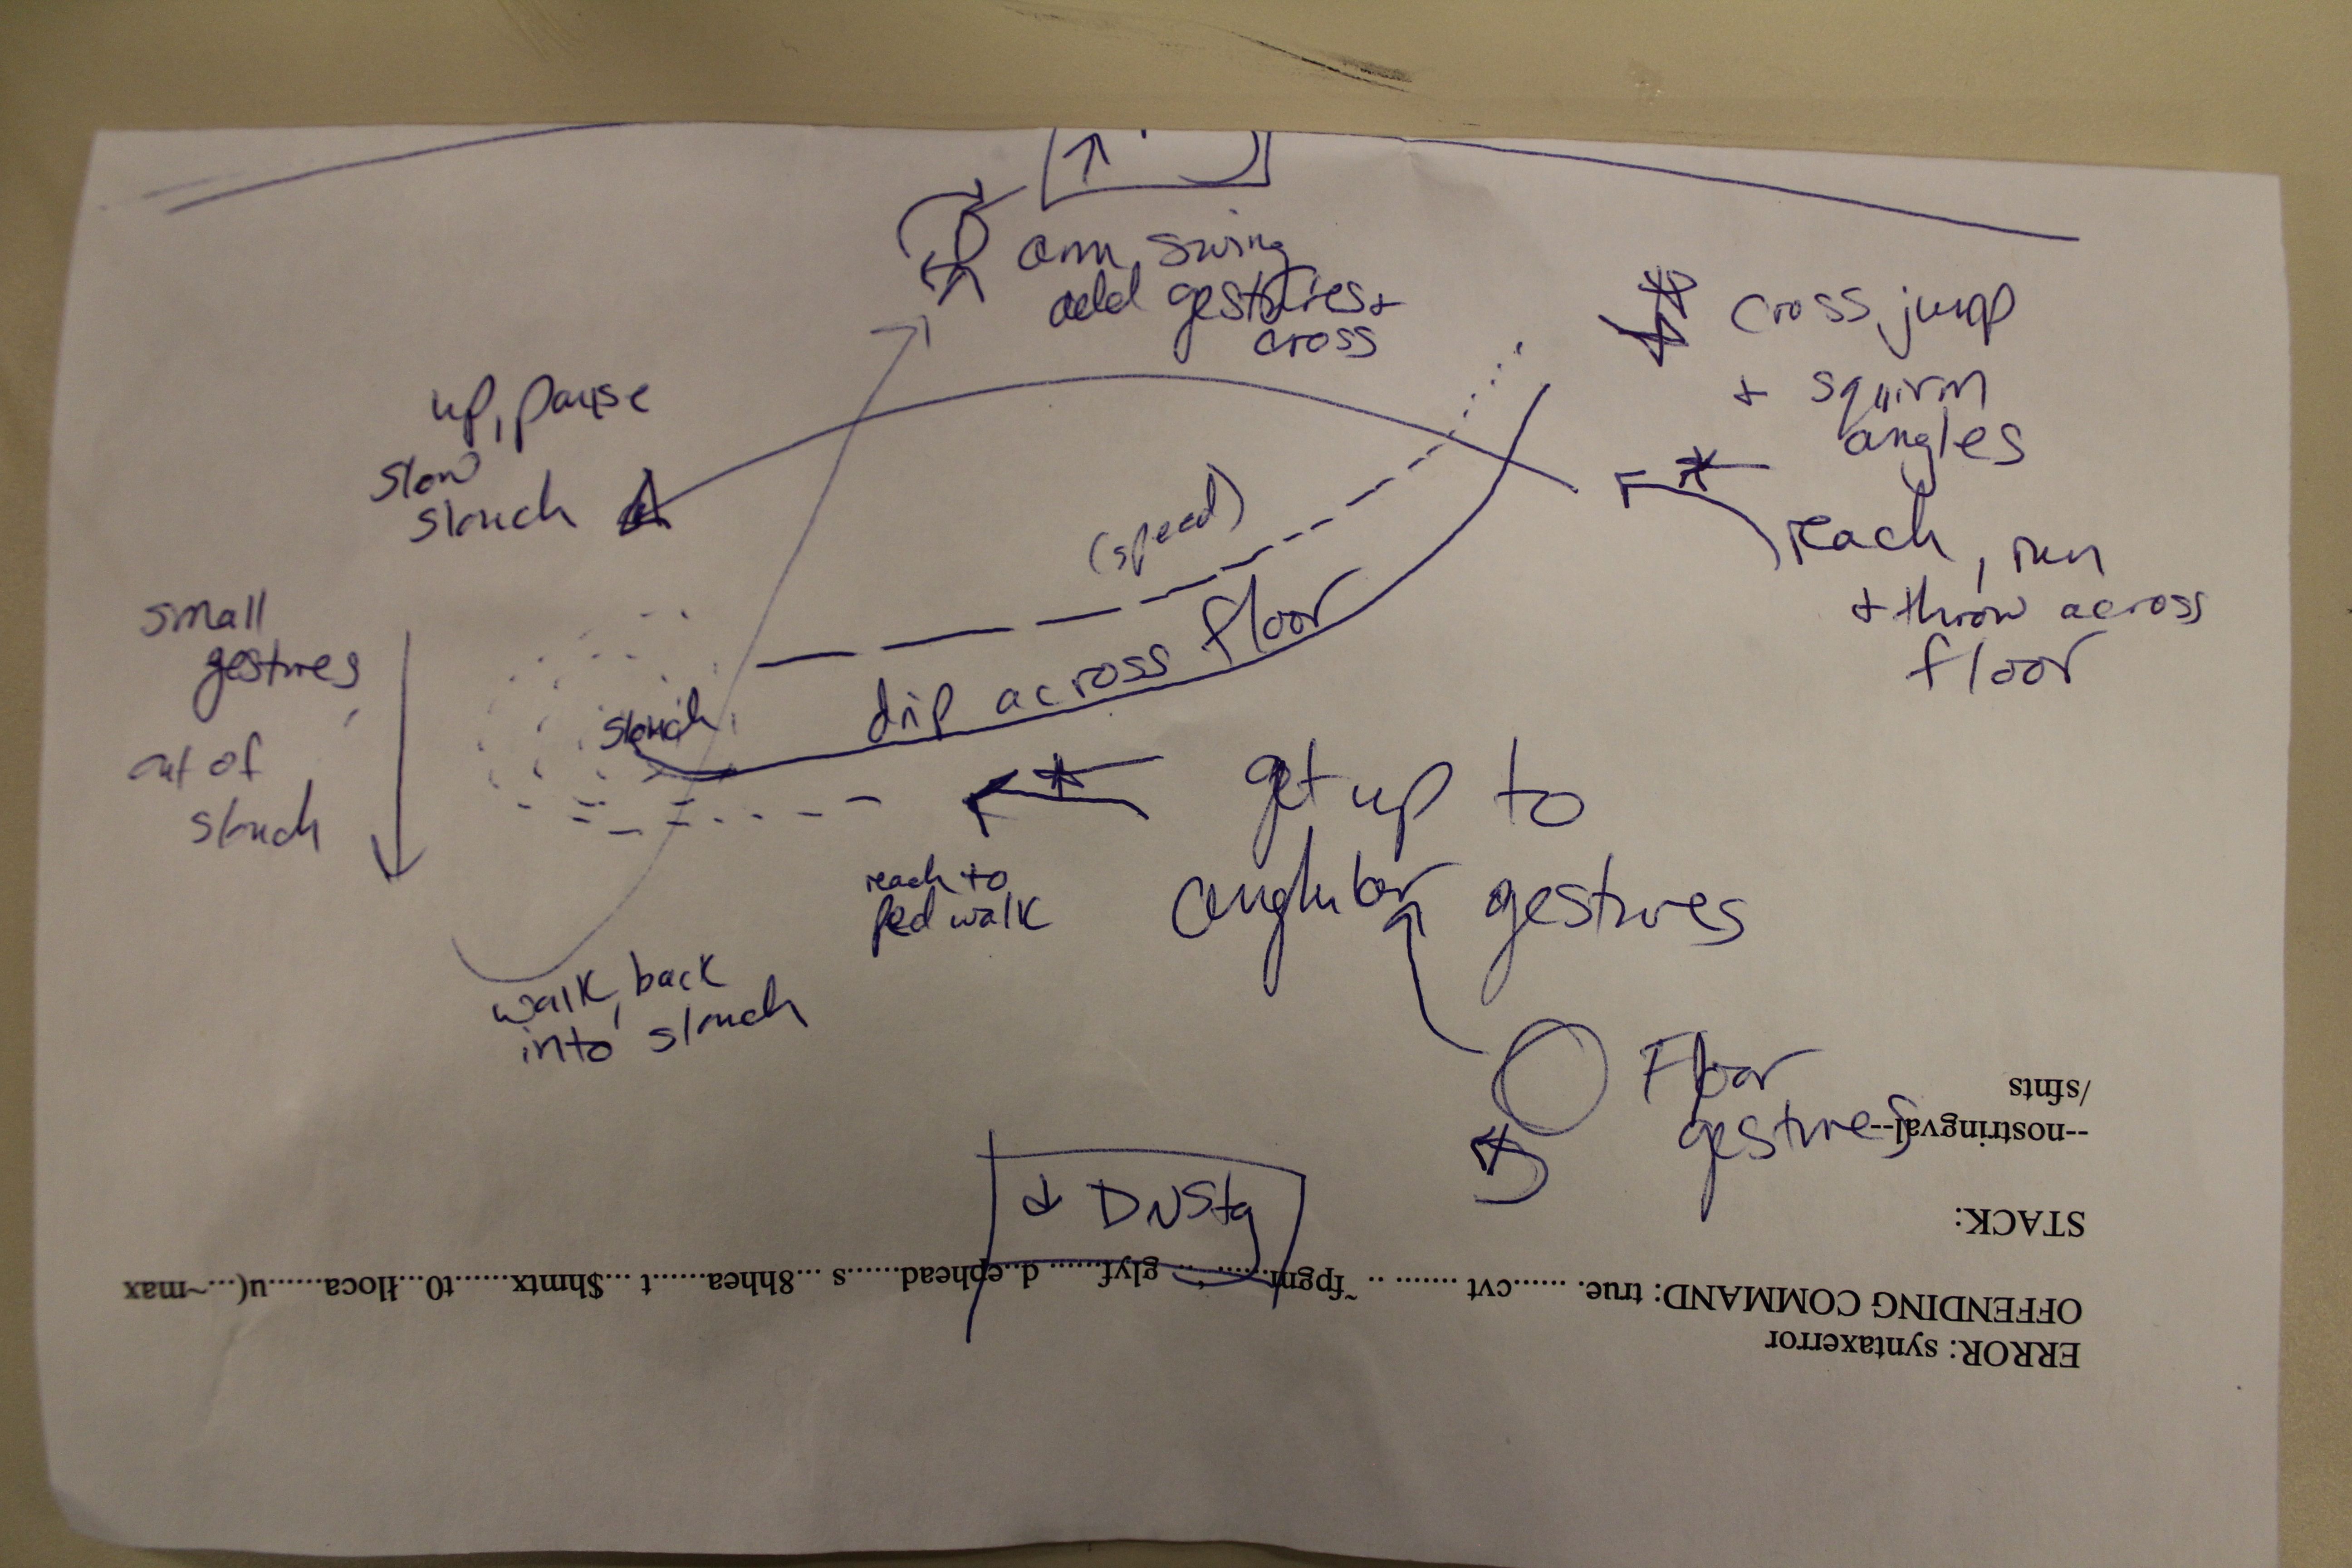 arm swing
add gestures +
cross
cross, jump
+ squirm
angles
up, pause
slow
slouch
reach, run
+ throw across
floor
(speed)
small
gestures
out of
slouch
slouch
drip across floor
get up to
angular gestures
reach to
ped walk
walk, back
into slouch
Floor
gestures
DNStg
/sfnts
--nostringval--
STACK:
OFFENDING COMMAND: true. .......cvt ........ .. ~fpgm....... .. glyf....... d..ephead.......s ...8hhea.......t ...$hmtx.......t0..tloca.......u(...~max
ERROR: syntaxerror